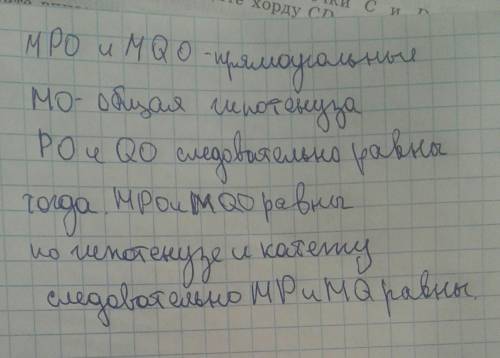 хорду CD
MPO и MQO - прямоугольные
MO - общая гипотенуза
PO и QO следовательно равны
тогда MPO и MQO равны
по гипотенузе и катету
следовательно MP и MQ равны.